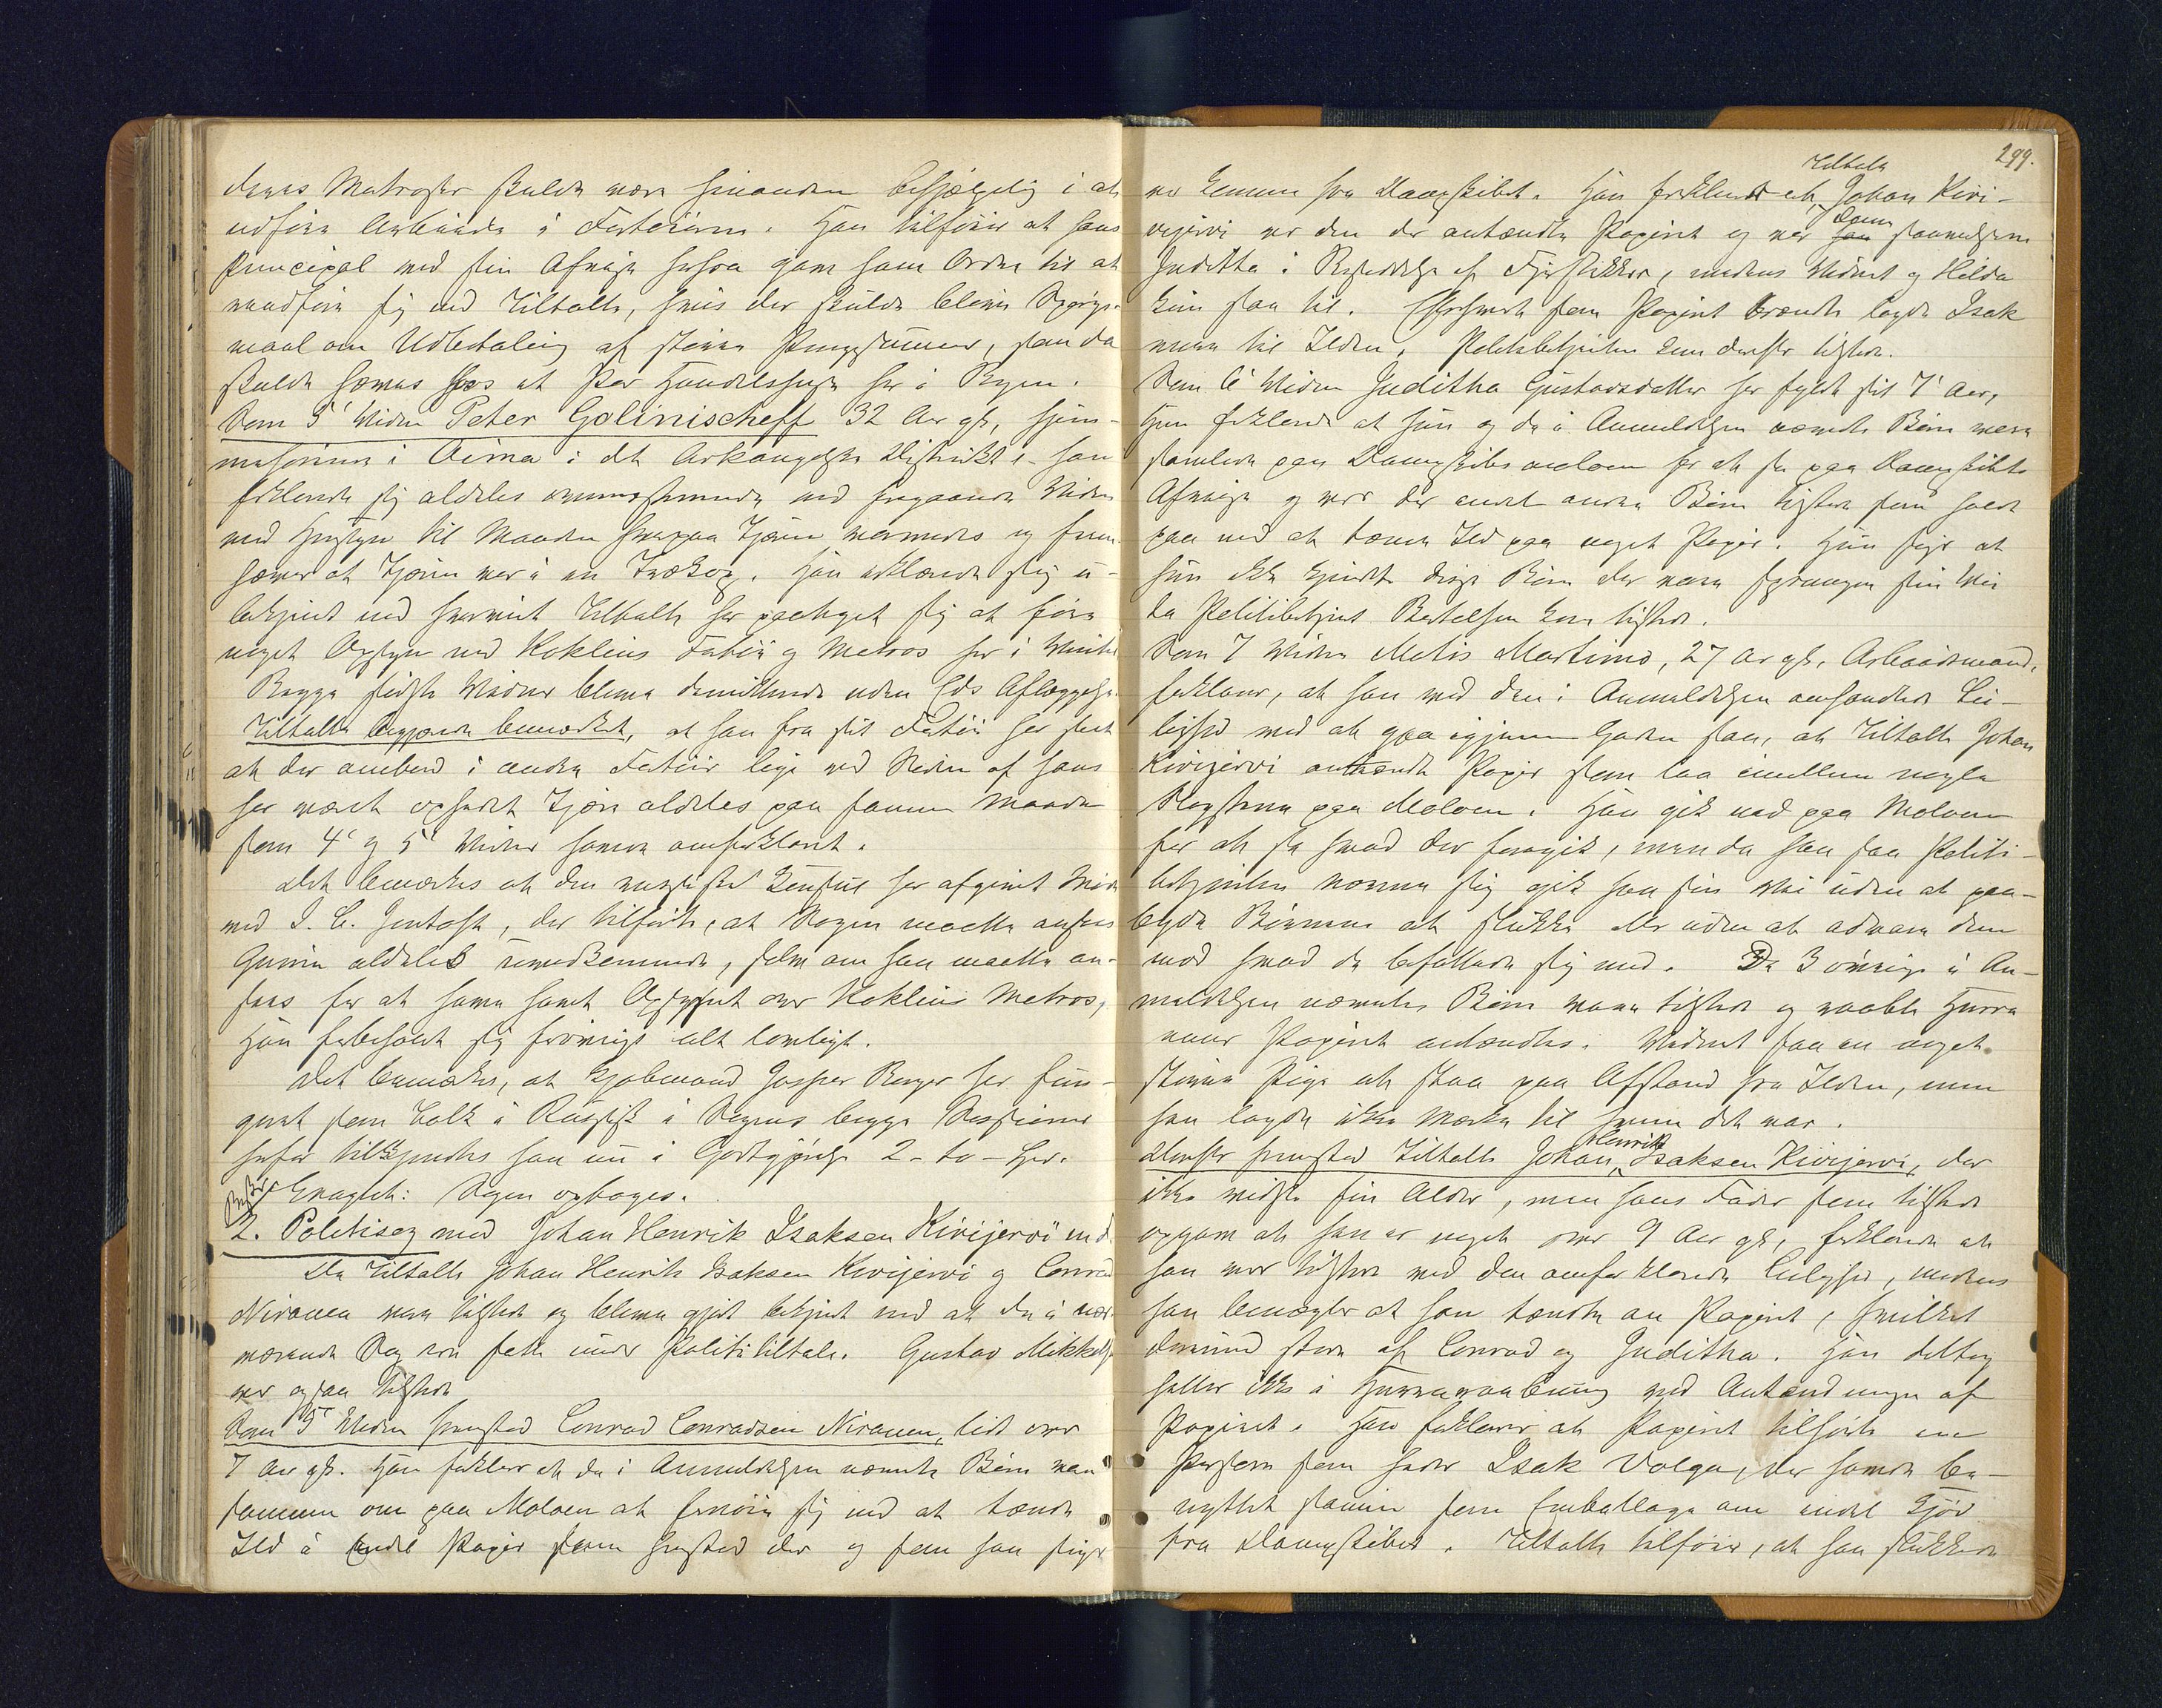 deres Matroser skulde være hinanden behjælpelig i at
udføre Arbeide i Fartøierne. Han tilføier at hans
Principal ved sin Afreise herfra gav ham Ordre til at
raadføre sig med Tiltalte, hvis der skulde blive Spørgs-
maal om Udbetaling af større Pengesummer, som da
skulde hæves hos et Par Handelshuse her i Byen.
Som 5' Vidne Peter Golinischeff 32 Aar gl, hjem-
mehørende i Oima i det Arkangelske Distrikt. Han
forklarede sig aldeles overensstemmende med foregaaende Vidne
med Hensyn til Maaden hvorpaa Tjæren varmedes og frem-
hæver at Tjæren var i en . Han erklærede sig u-
bekjent med hvorvidt Tiltalte har paataget sig at føre
noget Opsyn med Koklins Fartøi og Matros her i Vinter
Begge sidste Vidner bleve demitterede uden Eds Aflæggelse.
Tiltalte begjærede bemærket, at han fra sit Fartøi har seet
at der ombord i andre Fartøier lige ved Siden af hans
har været ophedet Tjære aldeles paa samme Maade
som 4' og 5' Vidner have omforklaret.
Det bemærkes at den russiske Konsul har afgivet Møde
ved I. C. Gentoft, der tilførte, at Sagen maatte ansees
Gunin aldeles uvedkommende, selv om han maatte an-
sees for at have havt Opsynet over Koklins Matros,
Han forbeholdt sig forøvrigt alt lovligt.
Det bemærkes, at Kjøbmand Jesper Berger har fun-
geret som Tolk i Russisk i Sagens begge Sessioner
herfor tilkjendes han nu i Godtgjørelse 2 - to - Kr.
Eragtet: Sagen optages.
2. Politisag mod Johan Henrik Isaksen Kivijervi m.fl.
De Tiltalte Johan Henrik Isaksen Kivijervi og Conrad
Niranen vare tilstede og bleve gjort bekjent med at de i nær-
værende Sag ere satte under Politi tiltale. Gustav Mikkels
var ogsaa tilstede
Som 5' Vidne fremstod Conrad Conradsen Niranen, lidt over
7 Aar gl. Han forklarer at de i Anmeldelsen nævnte Børn vare
sammen om paa Moloen at fornøie sig med at tænde
Ild i endel Papir som henstod der og som han siger
299.
var kommen fra Dampskibet. Han forklarede at Tiltalte Johan Kivi-
vejervi var den der antændte Papiret og var han Som
Juditha i Besiddelse af Fyrstikker, medens Vidnet og Hilda
kun saa til. Efterhvert som Papiret brændte lagde Isak
mere til Ilden. Politibetjenten kom derefter tilstede.
Som 6' Vidne Juditha Gustavsdatter har fyldt sit 7' Aar,
Hun forklarede at hun og de i Anmeldelsen nævnte Børn vare
samlede paa Dampskibsmoloen for at se paa Dampskibets
Afreise og var der endel andre Børn tilstede som holdt
paa med at tænde Ild paa noget Papir. Hun siger at
hun ikke kjendte disse Børn der vare sprungen sin Vei
da Politibetjent Bertelsen kom tilstede.
Som 7 Vidne Matis Martimo, 27 Aar gl, Arbeidsmand,
forklarer, at han ved den i Anmeldelsen omhandlede Lei-
lighed ved at gaa igjennem Gaden saa, at Tiltalte Johan
Kivijervi antændte Papir som laa imellem nogle
 paa Moloen. Han gik ned paa Moloen
for at se hvad der foregik, men da han saa Politi-
betjenten nærme sig gik han sin Vei uden at paa-
byde Børnene at slukke eller uden at advare dem
mod hvad de befattede sig med. De 3 øvrige i An-
meldelsen nævnte Børn vare tilstede og raabte Hurra
naar Papiret antændtes. Vidnet saa en noget
større Pige at staa paa Afstand fra Ilden, men
han lagde ikke Mærke til hvem det var.
Derefter fremstod Tiltalte Johan Henrik Isaksen Kivijervi, der
ikke vidste sin Alder, men hans Fader som tilstede
opgav at han er noget over 9 Aar gl, forklarede at
han var tilstede ved den omforklarede Leilighed, medens
han benægter at han tændte an Papiret, hvilket
derimod skede af Conrad og Juditha. Han deltog
heller ikke i Hurraraabning ved Antændingen af
Papiret. Han forklarer at Papiret tilhørte en
Person som heder Isak Volga, der havde be-
nyttet samme som Emballage om endel Kjød
fra Dampskibet. Tiltalte tilføier, at han slukkede